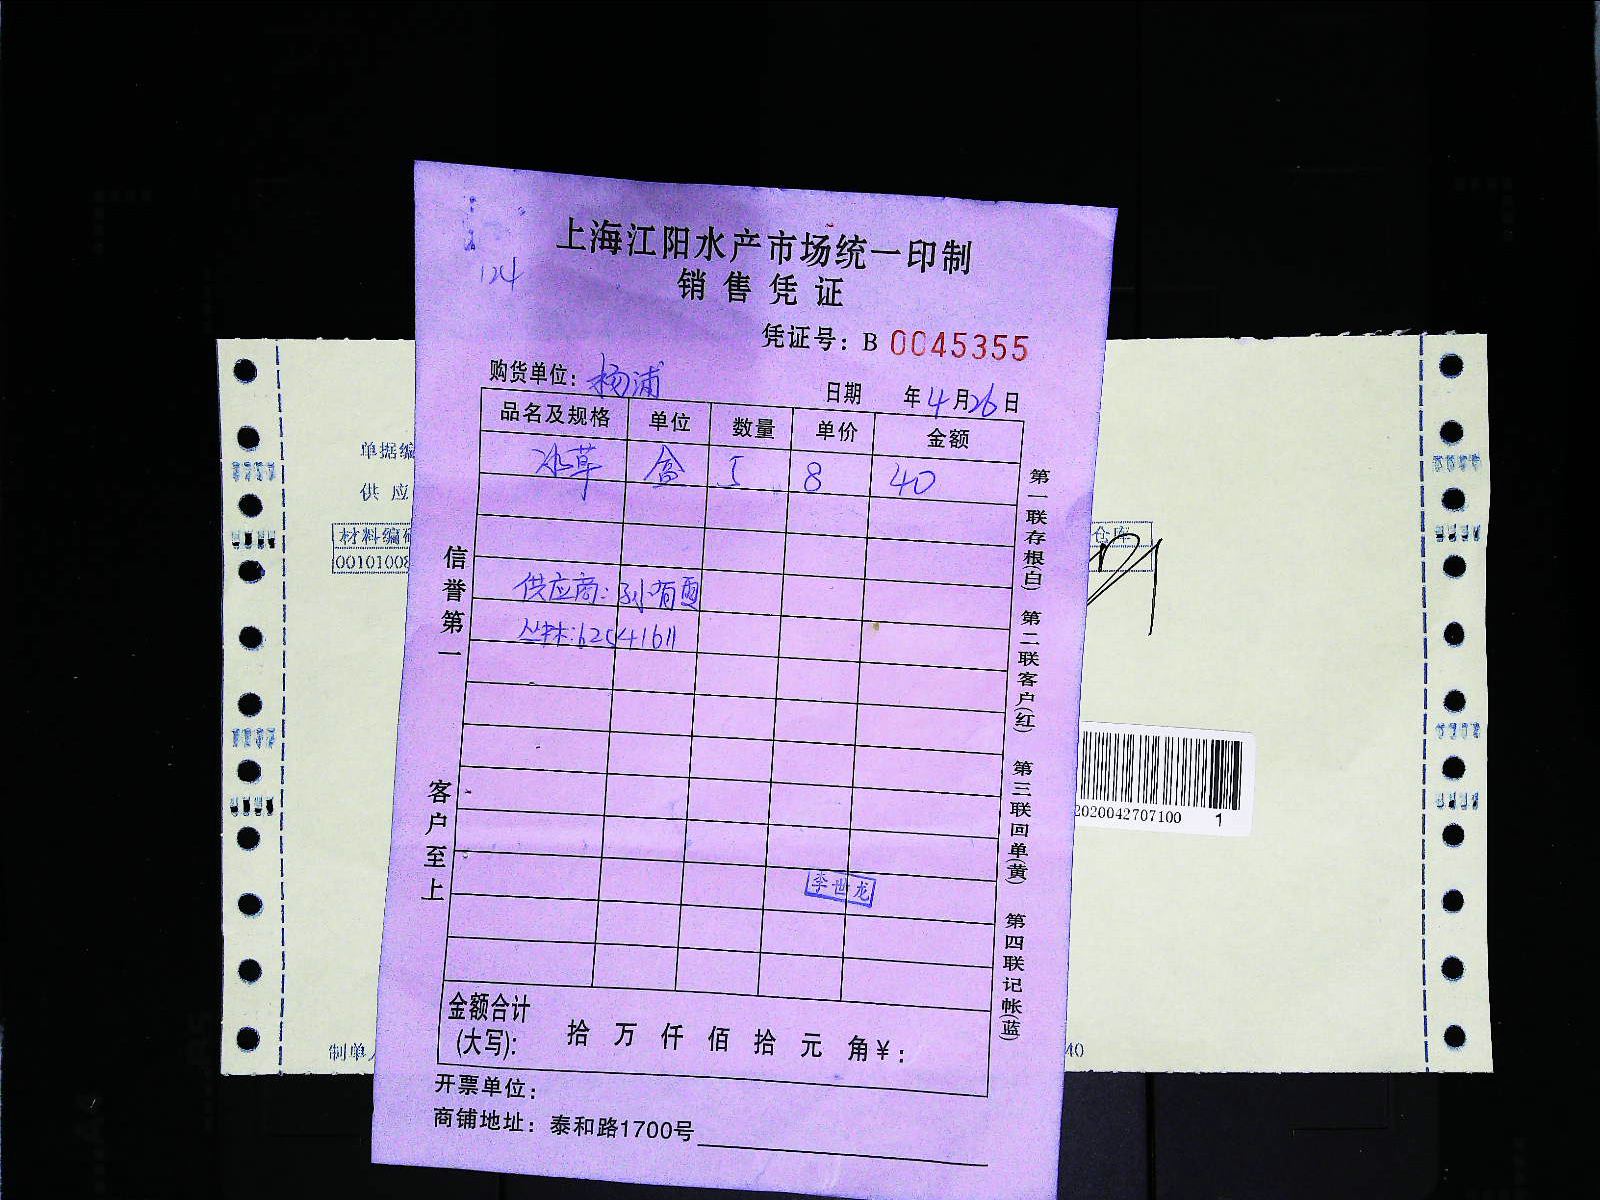 124
上海江阳水产市场统一印制
销售凭证
凭证号：B 0045355
购货单位：杨浦 日期 年4月26日
品名及规格 单位 数量 单价 金额
冰草 盒 5 8 40
供应商：
62541611
信誉第一
客户至上
李世龙
金额合计
(大写)： 拾 万 仟 佰 拾 元 角 ￥：
开票单位：
商铺地址：泰和路1700号
第一联存根(白) 第二联客户(红) 第三联回单(黄) 第四联记帐(蓝)
单据编
供 应
材料编
0010100
仓库
2020042707100 1
制单
40